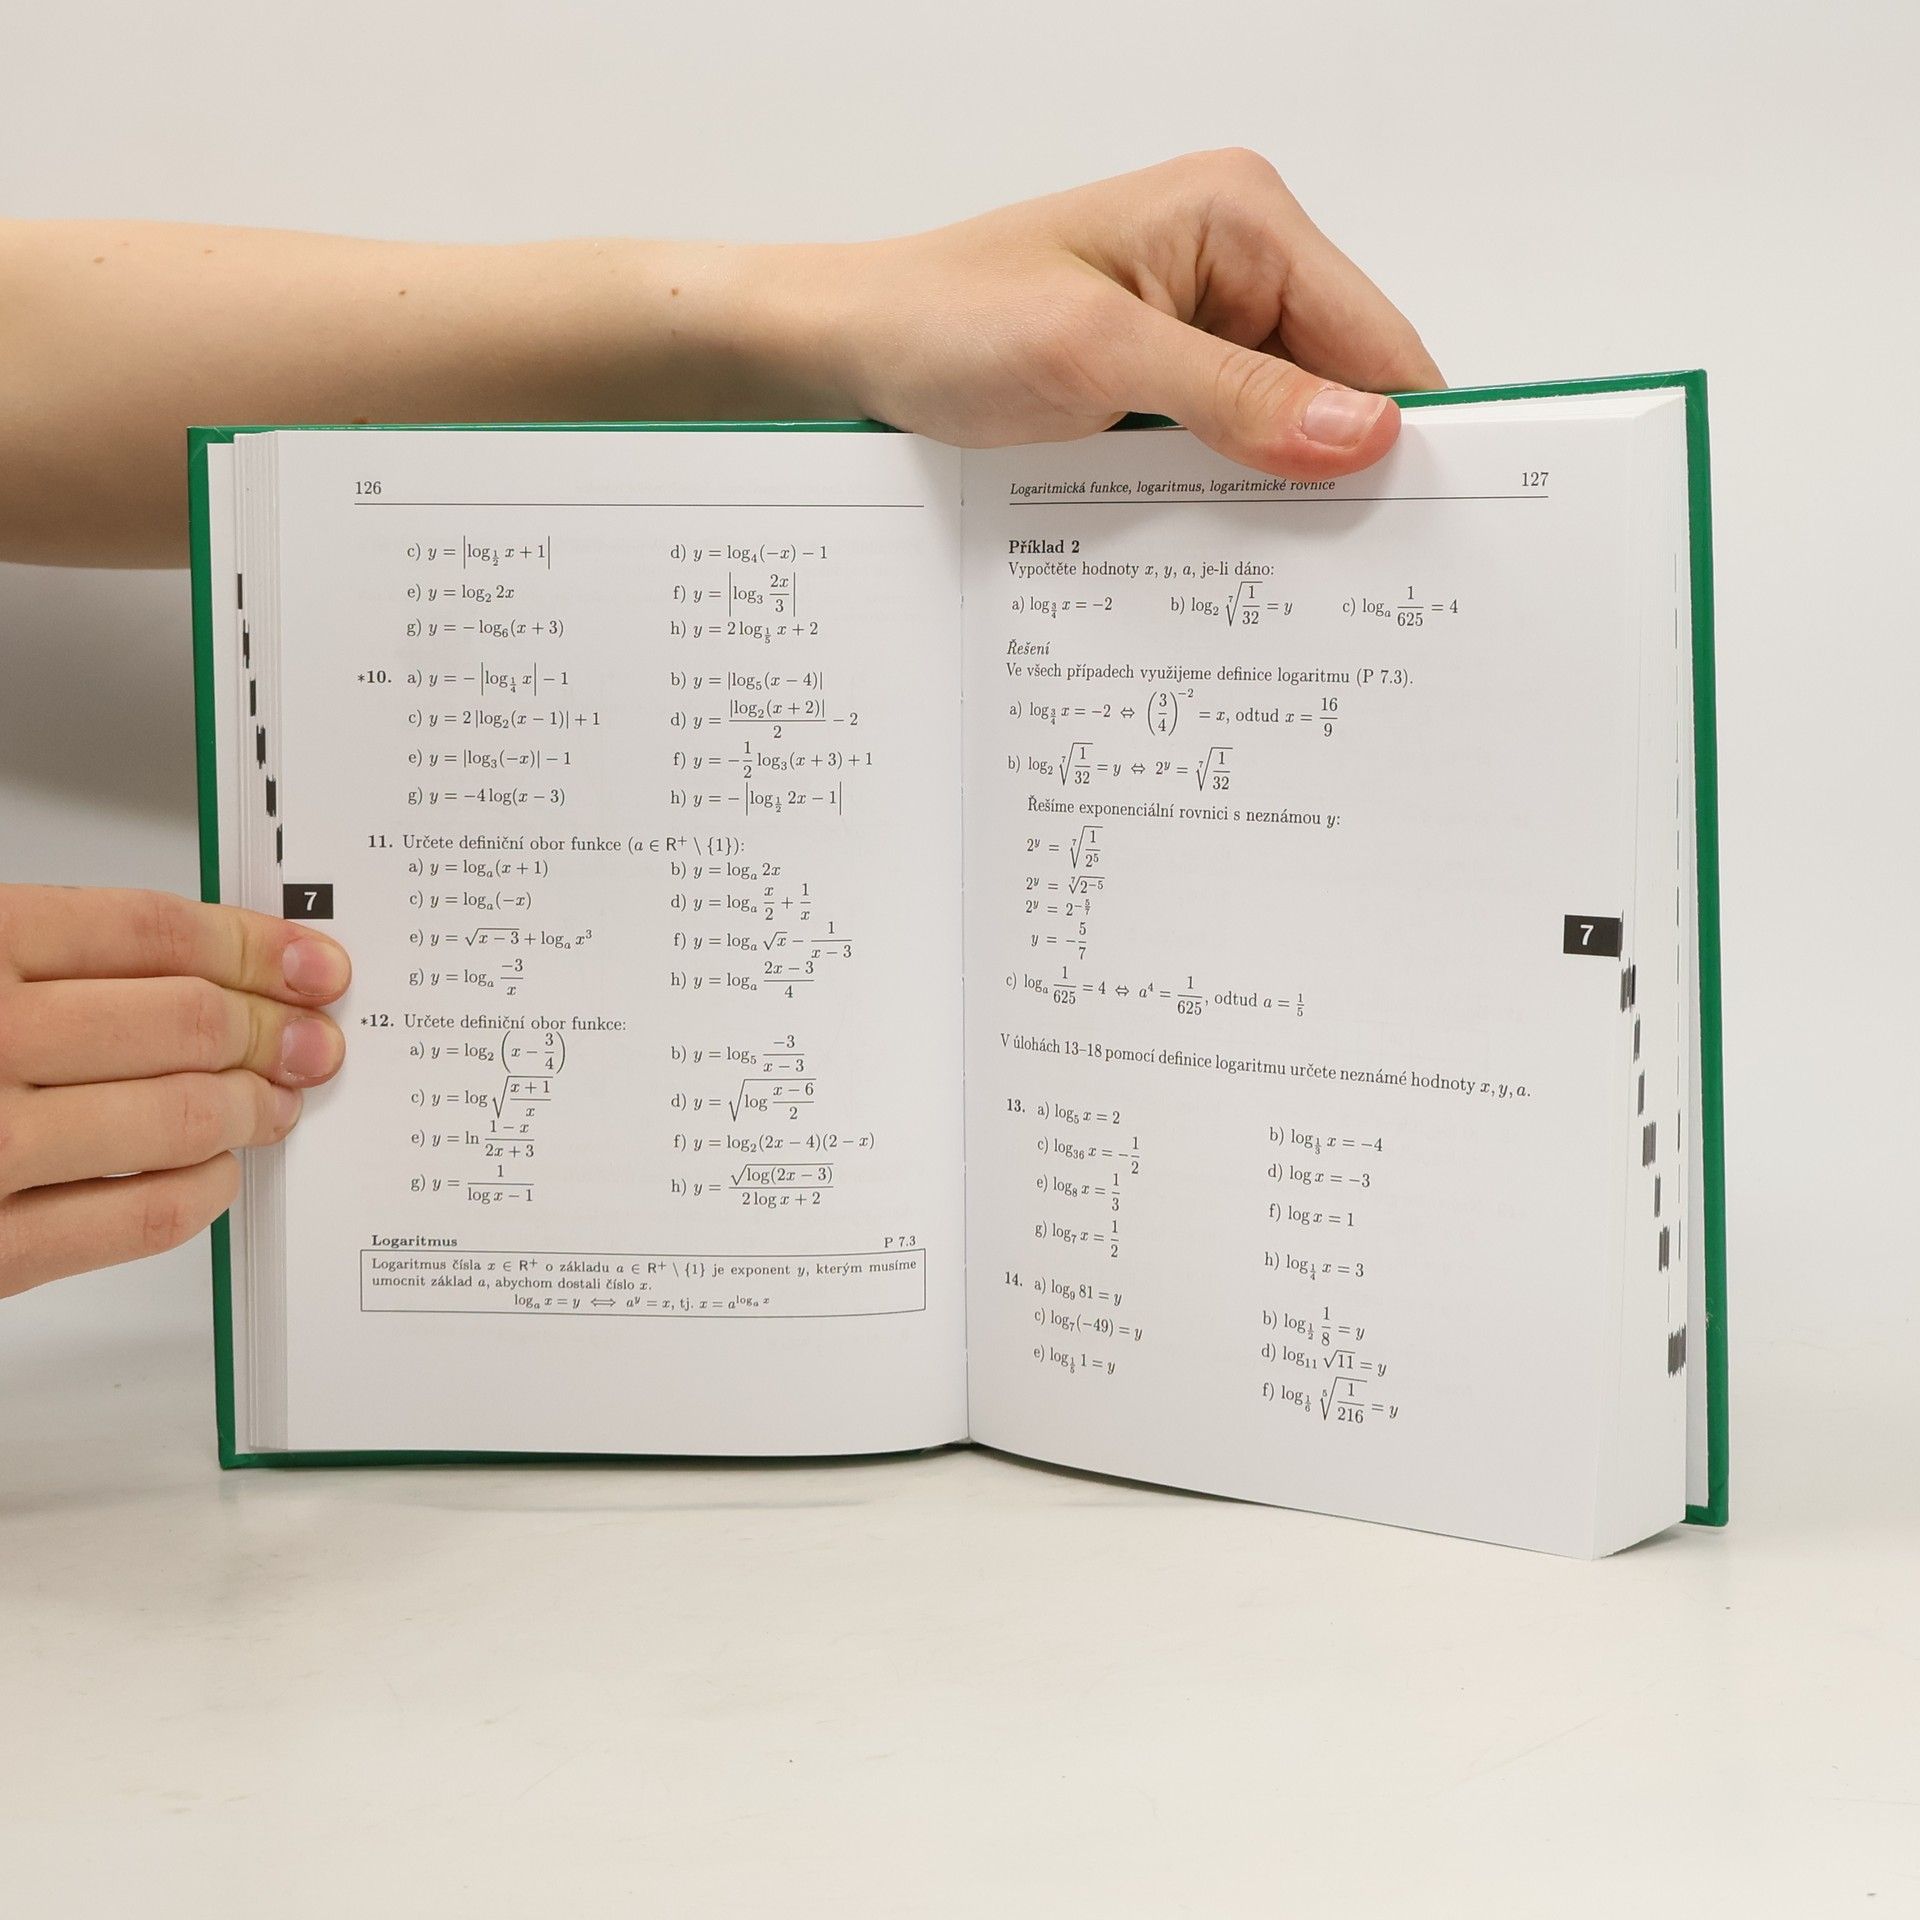 126
c) y = |log_{1/2} x + 1| d) y = log₄(−x) − 1
e) y = log₂ 2x f) y = |log₃ 2x/3|
g) y = − log₆(x + 3) h) y = 2 log_{1/5} x + 2
*10. a) y = − |log_{1/4} x| − 1 b) y = |log₅(x − 4)|
c) y = 2 |log₂(x − 1)| + 1 d) y = |log₂(x + 2)|/2 − 2
e) y = |log₃(−x)| − 1 f) y = −1/2 log₃(x + 3) + 1
g) y = −4 log(x − 3) h) y = − |log_{1/2} 2x − 1|
11. Určete definiční obor funkce (a ∈ R⁺ \ {1}):
a) y = logₐ(x + 1) b) y = logₐ 2x
c) y = logₐ(−x) d) y = logₐ x/2 + 1/x
e) y = √(x − 3) + logₐ x³ f) y = logₐ √x − 1/(x − 3)
g) y = logₐ −3/x h) y = logₐ (2x − 3)/4
*12. Určete definiční obor funkce:
a) y = log₂ (x − 3/4) b) y = log₅ −3/(x − 3)
c) y = log √((x + 1)/x) d) y = √(log (x − 6)/2)
e) y = ln (1 − x)/(2x + 3) f) y = log₂(2x − 4)(2 − x)
g) y = 1/(log x − 1) h) y = √(log(2x − 3))/(2 log x + 2)
Logaritmus P 7.3
Logaritmus čísla x ∈ R⁺ o základu a ∈ R⁺ \ {1} je exponent y, kterým musíme
umocnit základ a, abychom dostali číslo x.
logₐ x = y ⟺ a^y = x, tj. x = a^{logₐ x}
7
Logaritmická funkce, logaritmus, logaritmické rovnice 127
Příklad 2
Vypočtěte hodnoty x, y, a, je-li dáno:
a) log_{3/4} x = −2 b) log₂ ⁷√(1/32) = y c) logₐ 1/625 = 4
Řešení
Ve všech případech využijeme definice logaritmu (P 7.3).
a) log_{3/4} x = −2 ⇔ (3/4)^{−2} = x, odtud x = 16/9
b) log₂ ⁷√(1/32) = y ⇔ 2^y = ⁷√(1/32)
Řešíme exponenciální rovnici s neznámou y:
2^y = ⁷√(1/2⁵)
2^y = ⁷√(2^{−5})
2^y = 2^{−5/7}
y = −5/7
c) logₐ 1/625 = 4 ⇔ a⁴ = 1/625, odtud a = 1/5
V úlohách 13–18 pomocí definice logaritmu určete neznámé hodnoty x, y, a.
13. a) log₅ x = 2 b) log_{1/3} x = −4
c) log₃₆ x = −1/2 d) log x = −3
e) log₈ x = 1/3 f) log x = 1
g) log₇ x = 1/2 h) log_{1/4} x = 3
14. a) log₉ 81 = y b) log_{1/2} 1/8 = y
c) log₇(−49) = y d) log₁₁ √11 = y
e) log_{1/5} 1 = y f) log_{1/6} ⁵√(1/216) = y
7